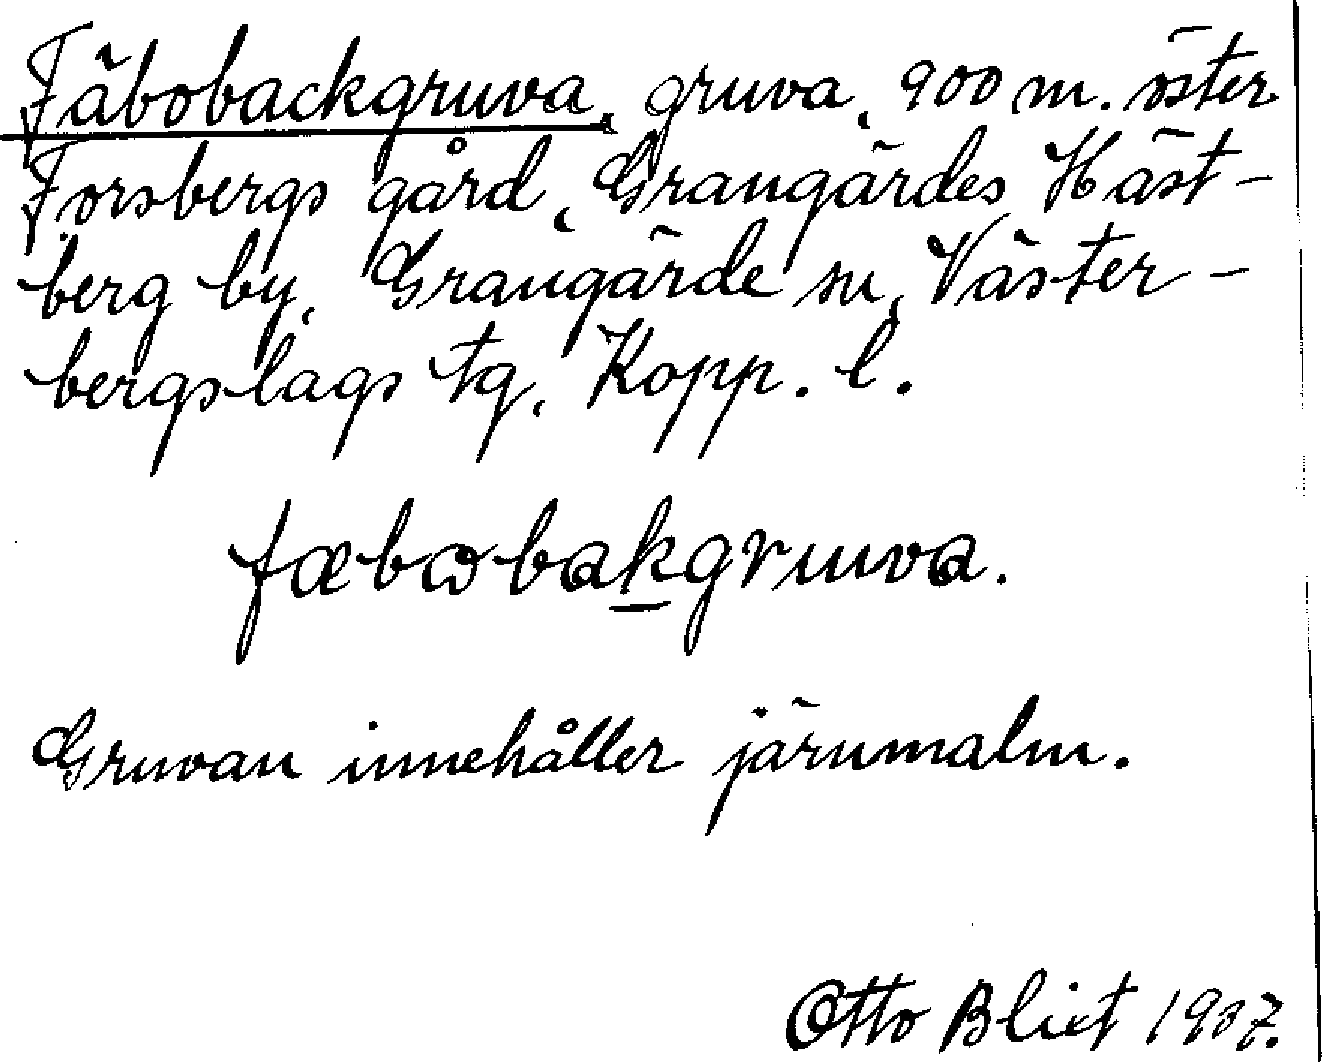 Fäbobackgruva, gruva, 900 m. öster
Forsbergs gård, Grangärdes Häst-
berg by, Grangärde sn, Väster-
bergslags tg, Kopp. l.
fæbωbakgruva.
Gruvan innehåller järnmalm.
Otto Blixt 1937.